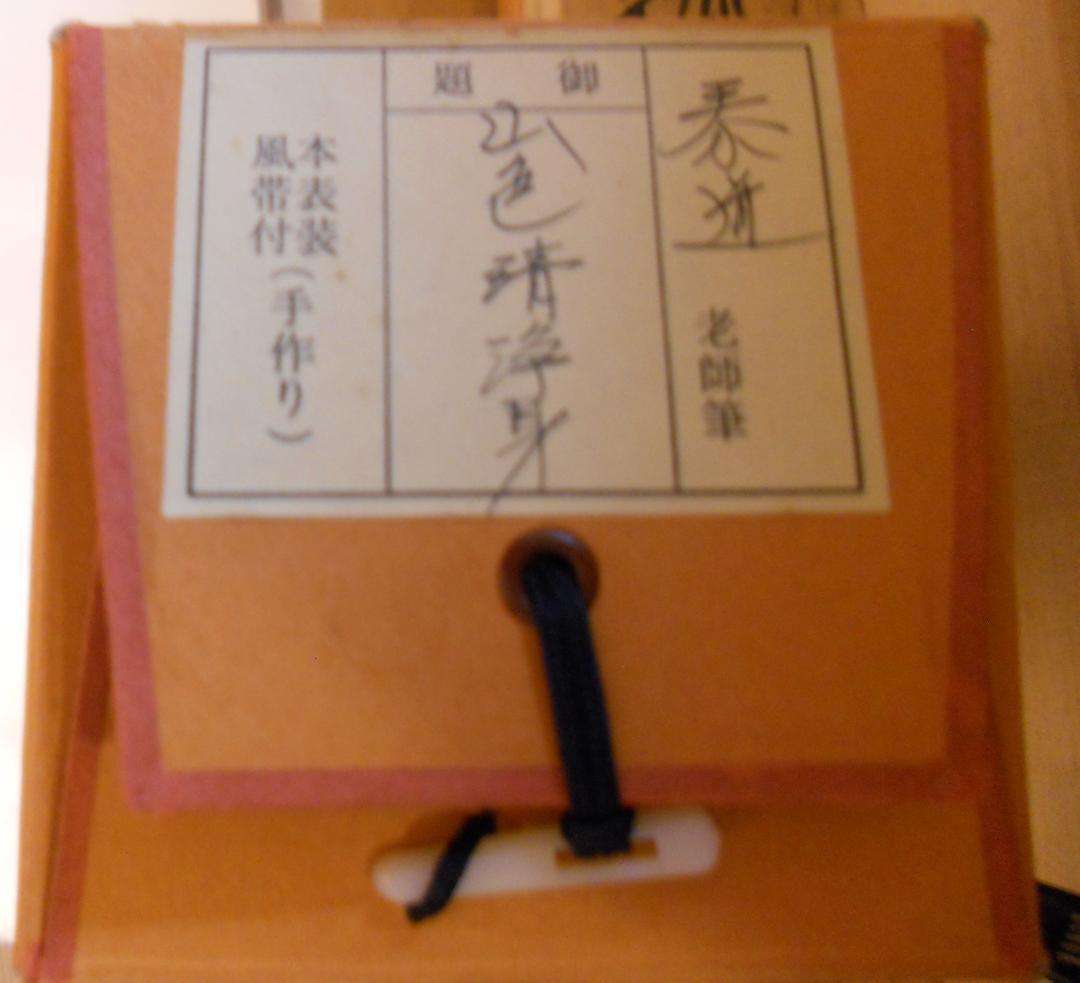 泰道 老師筆
御題
山色清浄身
本表装
風帯付(手作り)